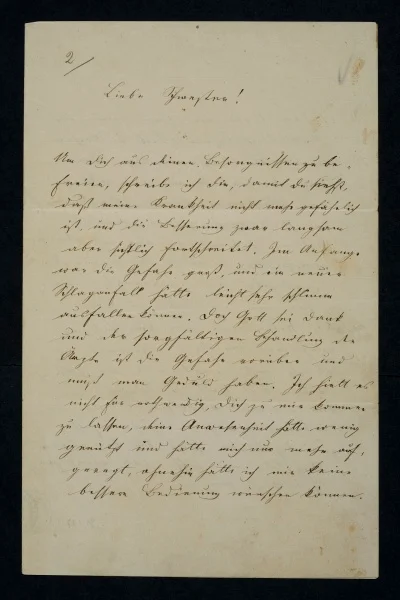 2/
Liebe Schwester!
Um Dich aus deinen Besorgnissen zu be-
freien, schreibe ich dir, damit du siehst,
daß meine Krankheit nicht mehr gefährlich
ist, und die Besserung zwar langsam
aber sichtlich fortschreitet. Im Anfange
war die Gefahr groß, und ein neuer
Schlaganfall hätte leicht sehr schlimm
ausfallen können. Doch Gott sei Dank
und der sorgfältigen Behandlung der
Ärzte ist die Gefahr vorüber und
muß man Geduld haben. Ich hielt es
nicht für nothwendig, Dich zu mir kommen
zu lassen, deine Anwesenheit hätte wenig
genützt und hätte mich nur mehr auf,
geregt, ohnehin hätte ich mir keine
bessere Bedienung wünschen können.